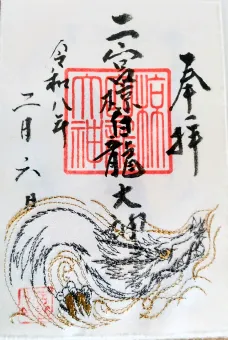 奉拝
二宮白龍大神
令和八年
二月六日